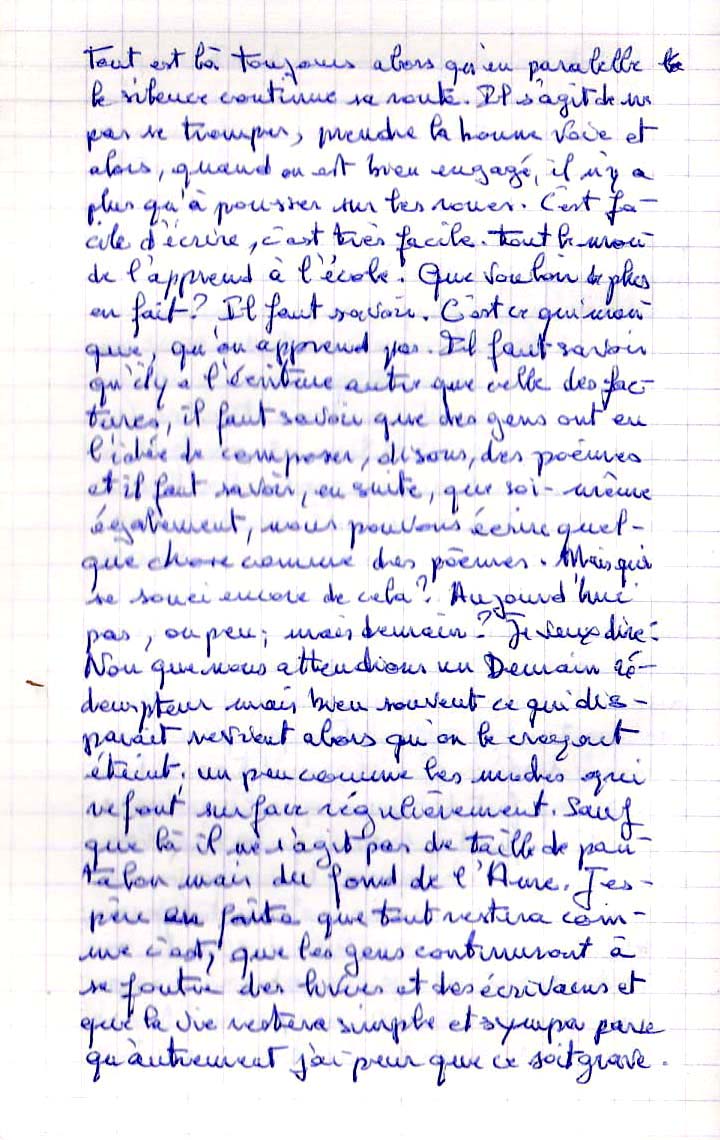 Tout est là toujours alors qu'en parallèle
le silence continue sa route. Il s'agit de ne
pas se tromper, prendre la bonne voie et
alors, quand on est bien engagé, il n'y a
plus qu'à pousser sur les roues. C'est fa-
cile d'écrire, c'est très facile. tout le mon
de l'apprend à l'école. Que vouloir de plus
en fait? Il faut savoir. C'est ce qui man
que, qu'on apprend pas. Il faut savoir
qu'il y a l'écriture autre que celle des fac-
tures, il faut savoir que des gens ont eu
l'idée de composer, disons, des poèmes
et il faut savoir, ensuite, que soi-même
également, nous pouvons écrire quel-
que chose comme des poèmes. Mais qui
se souci encore de cela? Aujourd'hui
pas, ou peu; mais demain? Je veux dire:
Non que nous attendions un Demain ré-
dempteur mais bien souvent ce qui dis-
parait revient alors qu'on le croyait
éteint; un peu comme les modes qui
refont surface régulièrement. Sauf
que là il ne s'agit pas de taille de pan-
talon mais du fond de l'Ame. J'es-
père en fait que tout restera com-
me c'est, que les gens continuront à
se foutre des livres et des écrivains et
que la vie restera simple et sympa parce
qu'autrement j'ai peur que ce soit grave.